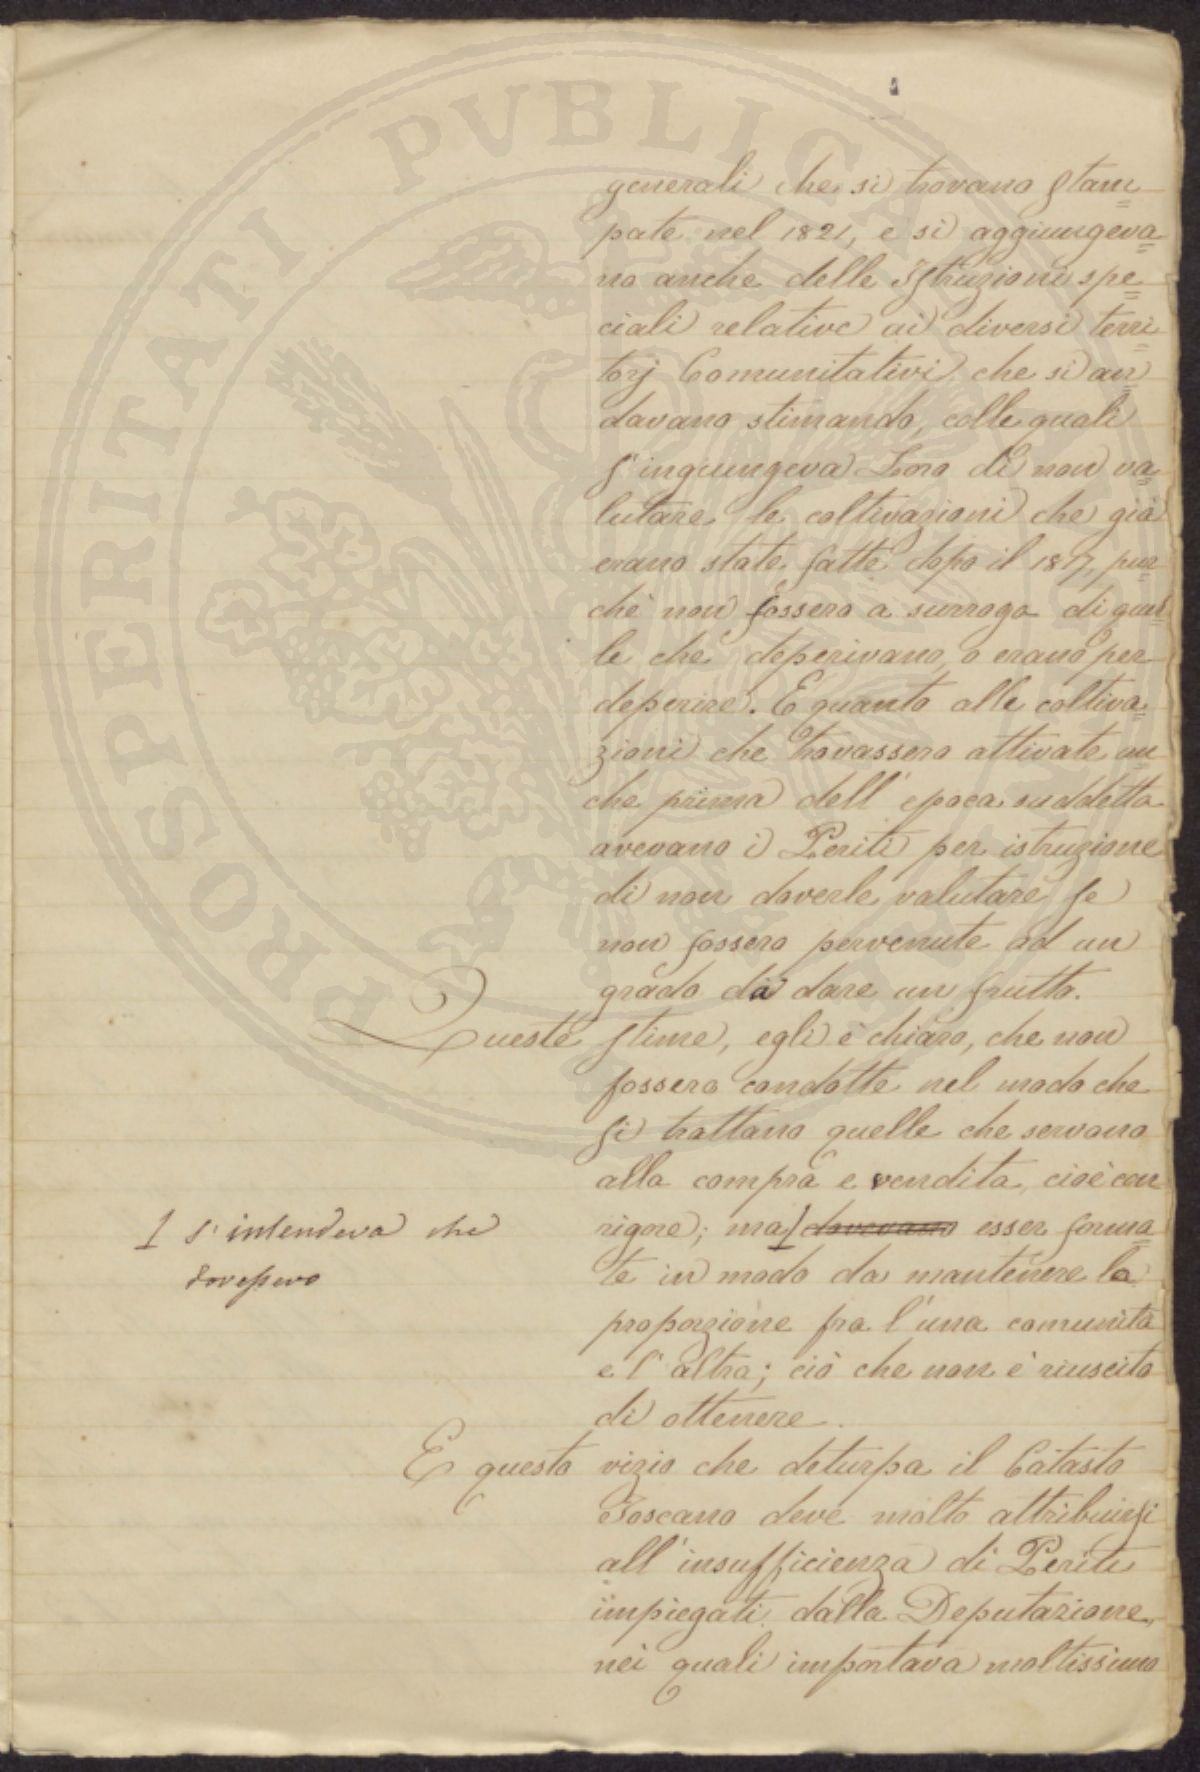 PROSPERITATI PVBLICAE
generali che si trovano stam=
pate nel 1821, e si aggiungeva=
no anche delle Istruzioni spe=
ciali relative ai diversi terri=
torj Comunitativi che si an=
davano stimando, colle quali
s'ingiungeva Loro di non va=
lutare le coltivazioni che già
erano state fatte dopo il 1817, pur=
chè non fossero a surrogo di quel=
le che deperivano, o erano per
deperire. E quanto alle coltiva=
zioni che trovassero attivate an=
che prima dell' epoca suddetta
avevano i Periti per istruzione
di non doverle valutare se
non fossero pervenute ad un
grado da dare un frutto.
Queste stime, egli è chiaro, che non
fossero condotte nel modo che
si trattano quelle che servono
alla compra e vendita, cioè con
rigore; ma 1 dovevano esser forma=
1 s'intendeva che
dovessero
te in modo da mantenere la
proporzione fra l'una comunità
e l'altra; ciò che non è riuscito
di ottenere.
E questo vizio che deturpa il Catasto
Toscano deve molto attribuirsi
all'insufficienza di Periti
impiegati dalla Deputazione,
nei quali importava moltissimo